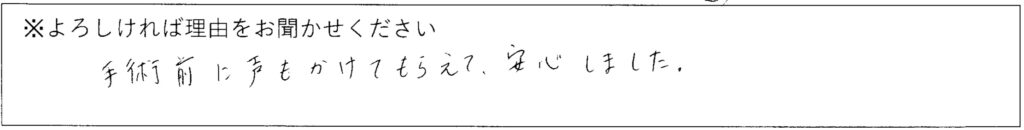 ※よろしければ理由をお聞かせください
手術前に声もかけてもらえて、安心しました。